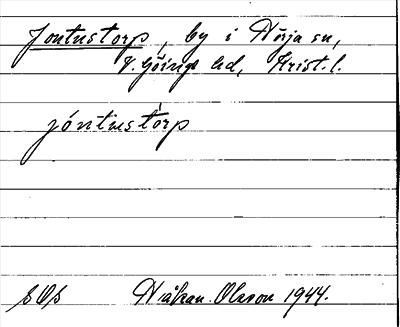 Jontustorp, by i Nörja sn,
V. Göinge hd, Krist. l.
jóntustòrp
SOS Håkan Olsson 1944.